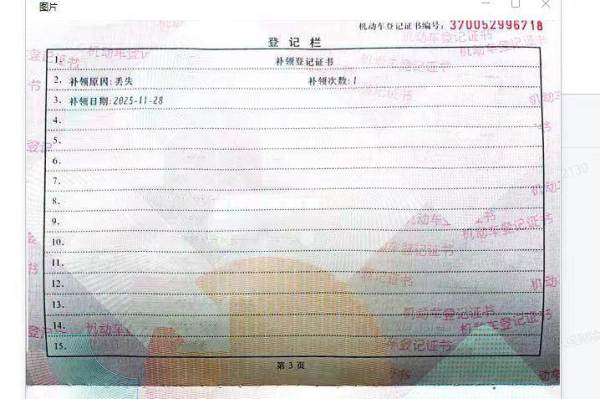 图片
机动车登记证书编号: 370052996718
登记栏
1. 补领登记证书
2. 补领原因:丢失 补领次数:1
3. 补领日期:2025-11-28
4.
5.
6.
7.
8.
9.
10.
11.
12.
13.
14.
15.
第 3 页
机动车登记证书
机动车登记证书
机动车登记证书
机动车登记证书
2130